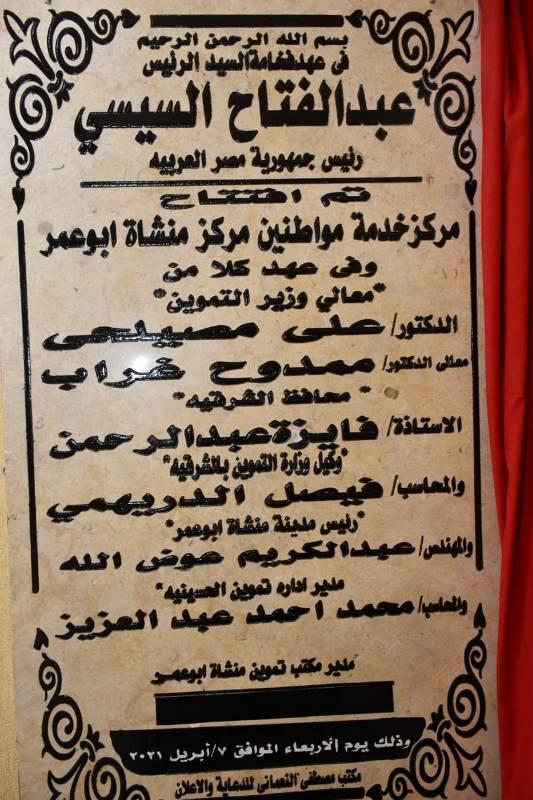 بسم الله الرحمن الرحيم
فى عهد فخامة السيد الرئيس
عبدالفتاح السيسي
رئيس جمهورية مصر العربيه
تم افتتاح
مركز خدمة مواطنين مركز منشاة ابوعمر
وفى عهد كلا من
"معالي وزير التموين"
الدكتور/ على مصيلحى
معالى الدكتور/ ممدوح غراب
" محافظ الشرقيه "
الاستاذة/ فايزة عبدالرحمن
"وكيل وزارة التموين بالشرقيه"
والمحاسب/ فيصل الدريهمي
"رئيس مدينة منشاة ابوعمر"
والمهندس/ عبدالكريم عوض الله
مدير اداره تموين الحسينيه"
والمحاسب/ محمد احمد عبد العزيز
مدير مكتب تموين منشاة ابوعمر
وذلك يوم الاربعاء الموافق ٧/أبريل ٢٠٢١
مكتب مصطفى النعمانى للدعاية والاعلان